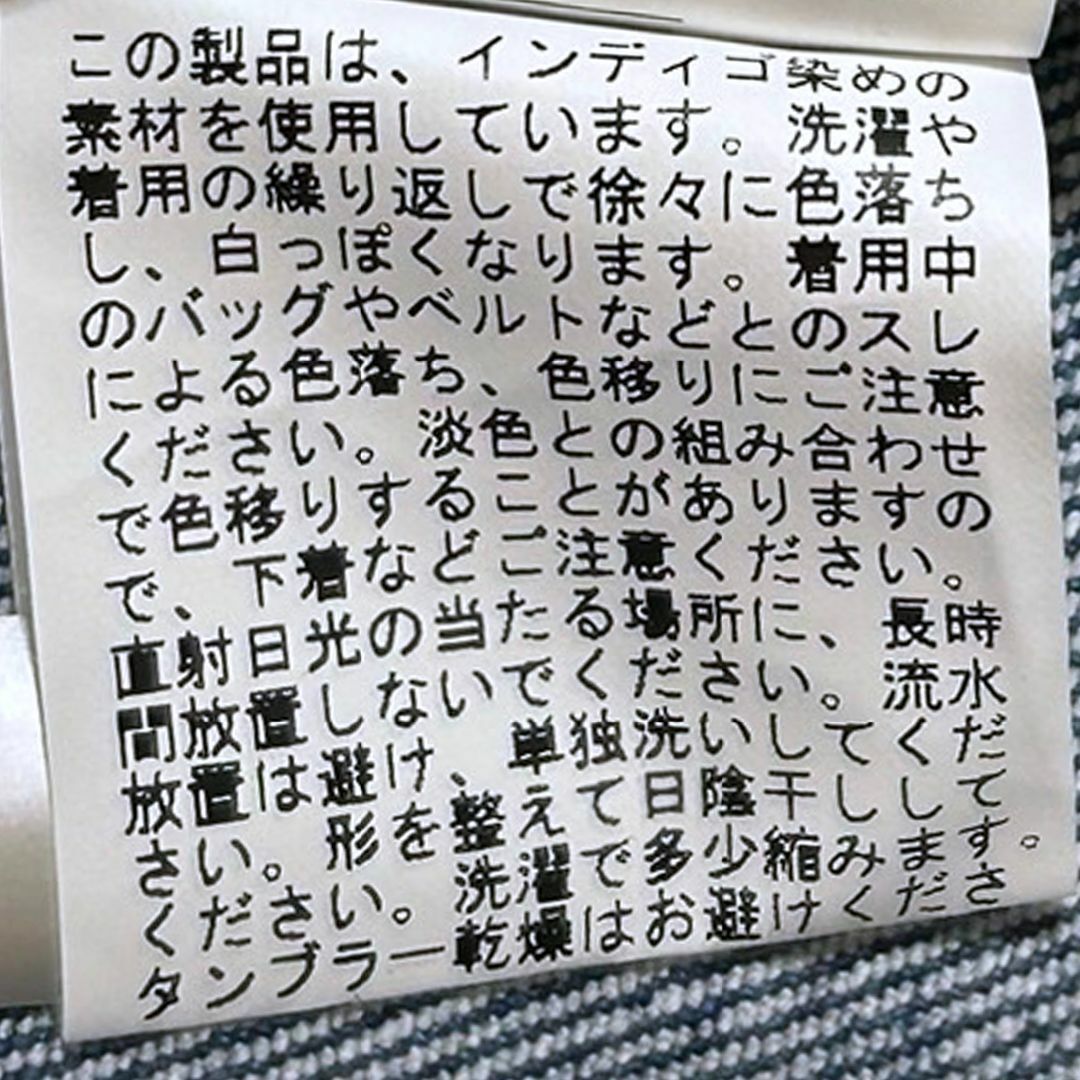 この製品は、インディゴ染めの
素材を使用しています。洗濯や
着用の繰り返しで徐々に色落ち
し、白っぽくなります。着用中
のバッグやベルトなどとのスレ
による色落ち、色移りにご注意
ください。淡色との組み合わせ
で色移りすることがありますの
で、下着などご注意ください。
直射日光の当たる場所に、長時
間放置しないでください。流水
放置は避け、単独洗いしてくだ
さい。形を整えて日陰干しして
ください。洗濯で多少縮みます。
タンブラー乾燥はお避けくださ